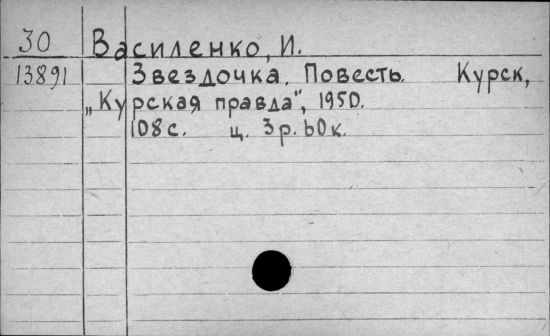 30 Василенко, И.
13891 Звездочка. Повесть. Курск,
„Курская правда", 1950.
108с. ц. 3р. 60к.